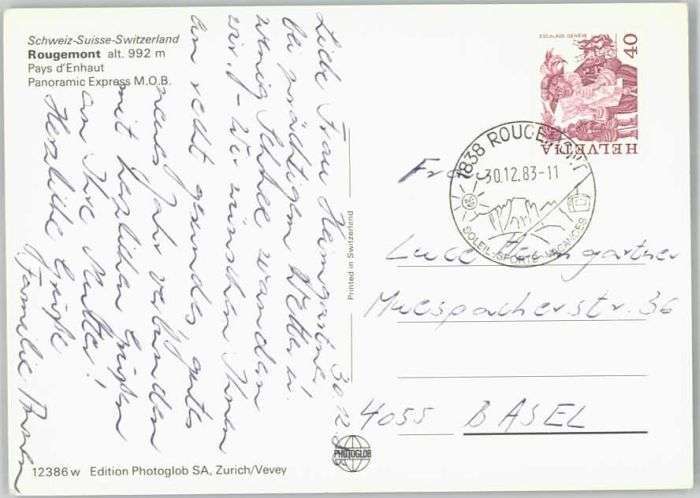 Schweiz-Suisse-Switzerland
Rougemont alt. 992 m
Pays d'Enhaut
Panoramic Express M.O.B.
30.12.83
Liebe Frau Heimgartner,
bei prächtigem Wetter u.
wenig Schnee wandern
wir. - Wir wünschen Ihnen
ein recht gesundes, gutes
neues Jahr verbunden
mit herzlichen Grüßen
an Ihre Mutter!
Herzliche Grüße
Familie
Printed in Switzerland
PHOTOGLOB
12386 w Edition Photoglob SA, Zurich/Vevey
ESCALADE GENÈVE
40
HELVETIA
1838 ROUGEMONT
30.12.83-11
SOLEIL-SPORTS-VACANCES
Frau
Luce Heimgartner
Muespacherstr. 36
4055 BASEL